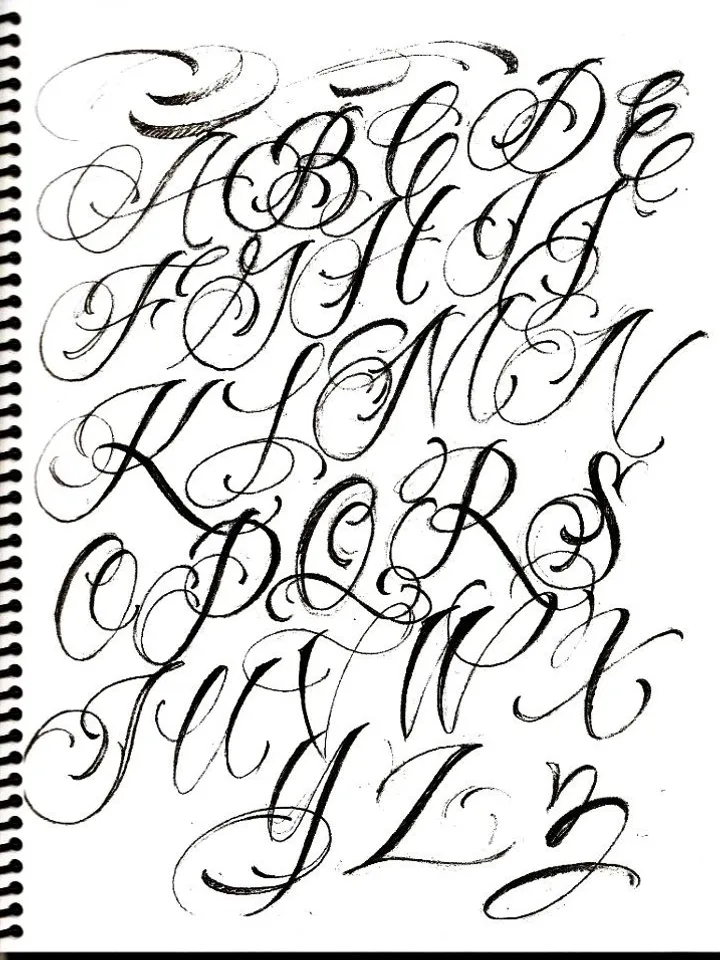 A B C D E
F G H I J
K L M N
O P Q R S
T U V W X
Y Z z